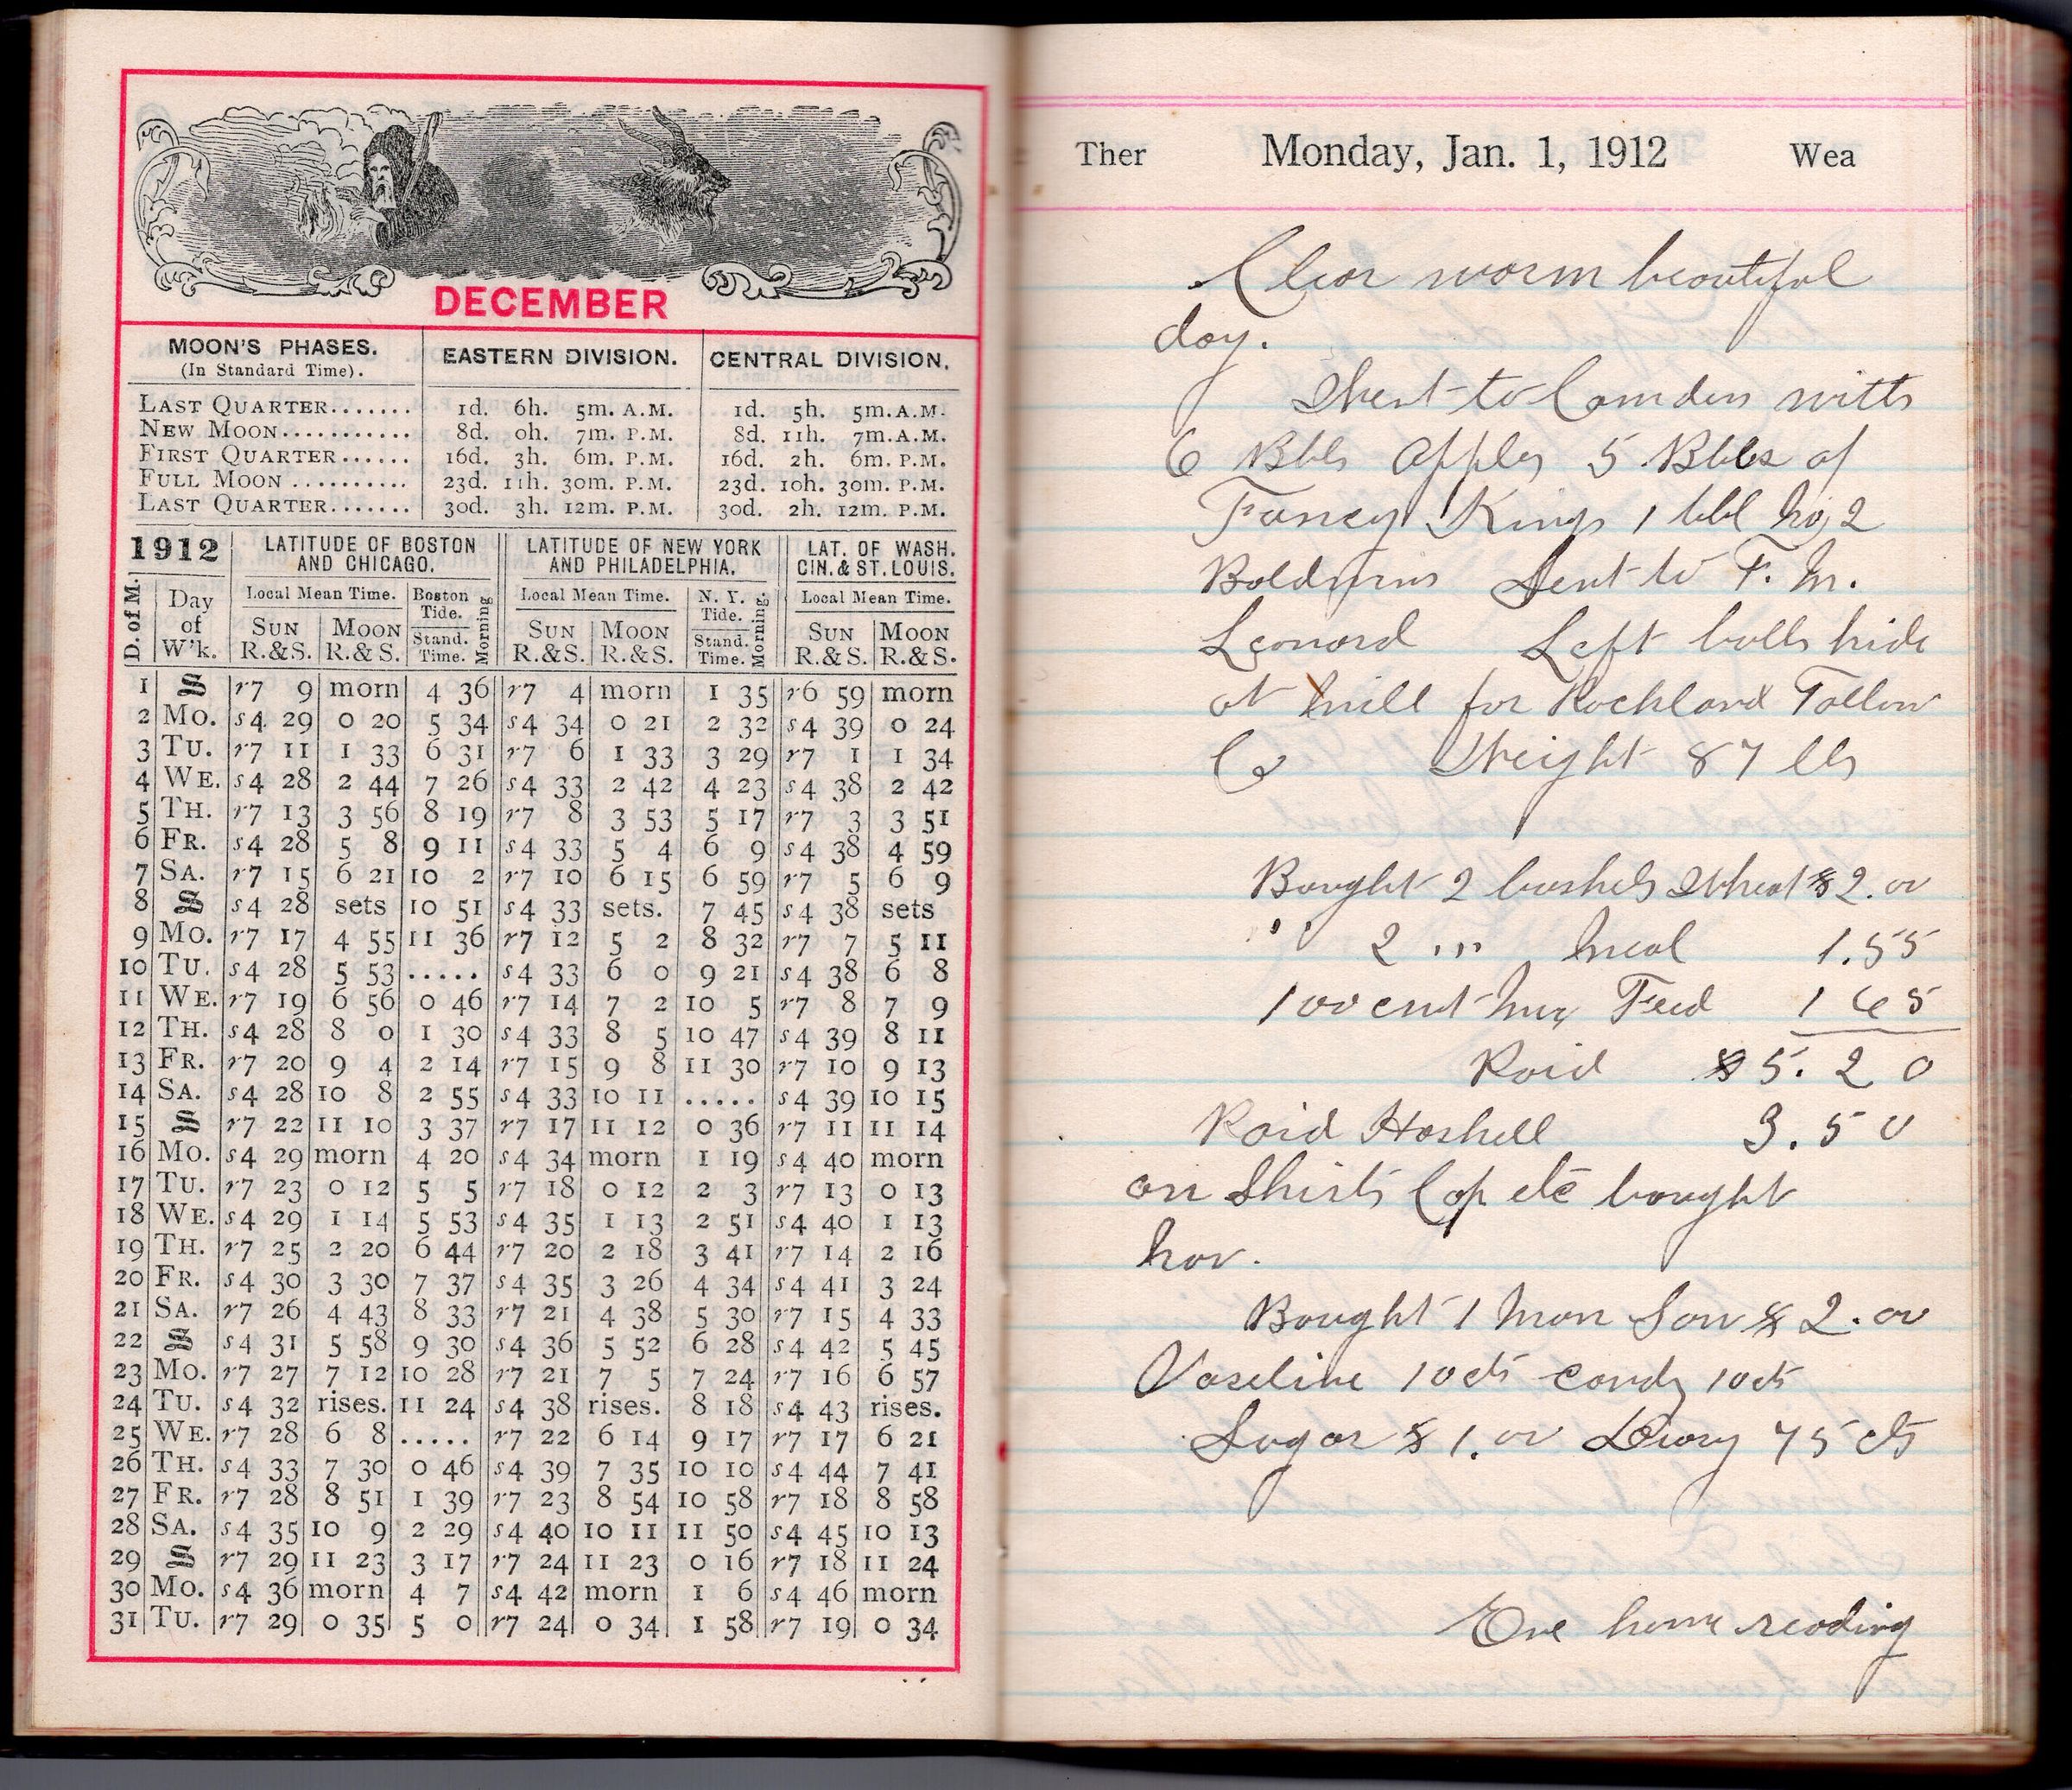 DECEMBER
MOON'S PHASES. (In Standard Time). EASTERN DIVISION. CENTRAL DIVISION.
LAST QUARTER....... 1d. 6h. 5m. A.M. 1d. 5h. 5m. A.M.
NEW MOON........... 8d. 0h. 7m. P.M. 8d. 11h. 7m. A.M.
FIRST QUARTER...... 16d. 3h. 6m. P.M. 16d. 2h. 6m. P.M.
FULL MOON .......... 23d. 11h. 30m. P.M. 23d. 10h. 30m. P.M.
LAST QUARTER....... 30d. 3h. 12m. P.M. 30d. 2h. 12m. P.M.
1912 LATITUDE OF BOSTON AND CHICAGO. LATITUDE OF NEW YORK AND PHILADELPHIA. LAT. OF WASH. CIN. & ST. LOUIS.
D. of M. Day of W'k. Local Mean Time. Boston Tide. Morning Local Mean Time. N. Y. Tide. Morning. Local Mean Time.
SUN R.&S. MOON R.&S. Stand. Time. SUN R.&S. MOON R.&S. Stand. Time. SUN R.&S. MOON R.&S.
1 S r7 9 morn 4 36 r7 4 morn 1 35 r6 59 morn
2 MO. s4 29 0 20 5 34 s4 34 0 21 2 32 s4 39 0 24
3 TU. r7 11 1 33 6 31 r7 6 1 33 3 29 r7 1 1 34
4 WE. s4 28 2 44 7 26 s4 33 2 42 4 23 s4 38 2 42
5 TH. r7 13 3 56 8 19 r7 8 3 53 5 17 r7 3 3 51
6 FR. s4 28 5 8 9 11 s4 33 5 4 6 9 s4 38 4 59
7 SA. r7 15 6 21 10 2 r7 10 6 15 6 59 r7 5 6 9
8 S s4 28 sets 10 51 s4 33 sets. 7 45 s4 38 sets
9 MO. r7 17 4 55 11 36 r7 12 5 2 8 32 r7 7 5 11
10 TU. s4 28 5 53 ..... s4 33 6 0 9 21 s4 38 6 8
11 WE. r7 19 6 56 0 46 r7 14 7 2 10 5 r7 8 7 9
12 TH. s4 28 8 0 1 30 s4 33 8 5 10 47 s4 39 8 11
13 FR. r7 20 9 4 2 14 r7 15 9 8 11 30 r7 10 9 13
14 SA. s4 28 10 8 2 55 s4 33 10 11 ..... s4 39 10 15
15 S r7 22 11 10 3 37 r7 17 11 12 0 36 r7 11 11 14
16 MO. s4 29 morn 4 20 s4 34 morn 1 19 s4 40 morn
17 TU. r7 23 0 12 5 5 r7 18 0 12 2 3 r7 13 0 13
18 WE. s4 29 1 14 5 53 s4 35 1 13 2 51 s4 40 1 13
19 TH. r7 25 2 20 6 44 r7 20 2 18 3 41 r7 14 2 16
20 FR. s4 30 3 30 7 37 s4 35 3 26 4 34 s4 41 3 24
21 SA. r7 26 4 43 8 33 r7 21 4 38 5 30 r7 15 4 33
22 S s4 31 5 58 9 30 s4 36 5 52 6 28 s4 42 5 45
23 MO. r7 27 7 12 10 28 r7 21 7 5 7 24 r7 16 6 57
24 TU. s4 32 rises. 11 24 s4 38 rises. 8 18 s4 43 rises.
25 WE. r7 28 6 8 ..... r7 22 6 14 9 17 r7 17 6 21
26 TH. s4 33 7 30 0 46 s4 39 7 35 10 10 s4 44 7 41
27 FR. r7 28 8 51 1 39 r7 23 8 54 10 58 r7 18 8 58
28 SA. s4 35 10 9 2 29 s4 40 10 11 11 50 s4 45 10 13
29 S r7 29 11 23 3 17 r7 24 11 23 0 16 r7 18 11 24
30 MO. s4 36 morn 4 7 s4 42 morn 1 6 s4 46 morn
31 TU. r7 29 0 35 5 0 r7 24 0 34 1 58 r7 19 0 34
Ther Monday, Jan. 1, 1912 Wea
Clear warm beautiful
day.
Went to Camden with
6 Bbls Apples 5 Bbls of
Fancy Kings 1 bbl No 2
Baldwins Sent to F. M.
Leonard Left bulls hide
at Mill for Rockland Tallow
Co Weight 87 lbs
Bought 2 bushels Wheat $2.00
" 2 " " Meal 1.55
100 cwt Mix Feed 1 65
Paid $5.20
Paid Haskell 3.50
on Shirts Cap etc bought
Nov.
Bought 1 Man Saw $2.00
Vaseline 10cts candy 10cts
Sugar $1.00 75 cts
Eve home reading